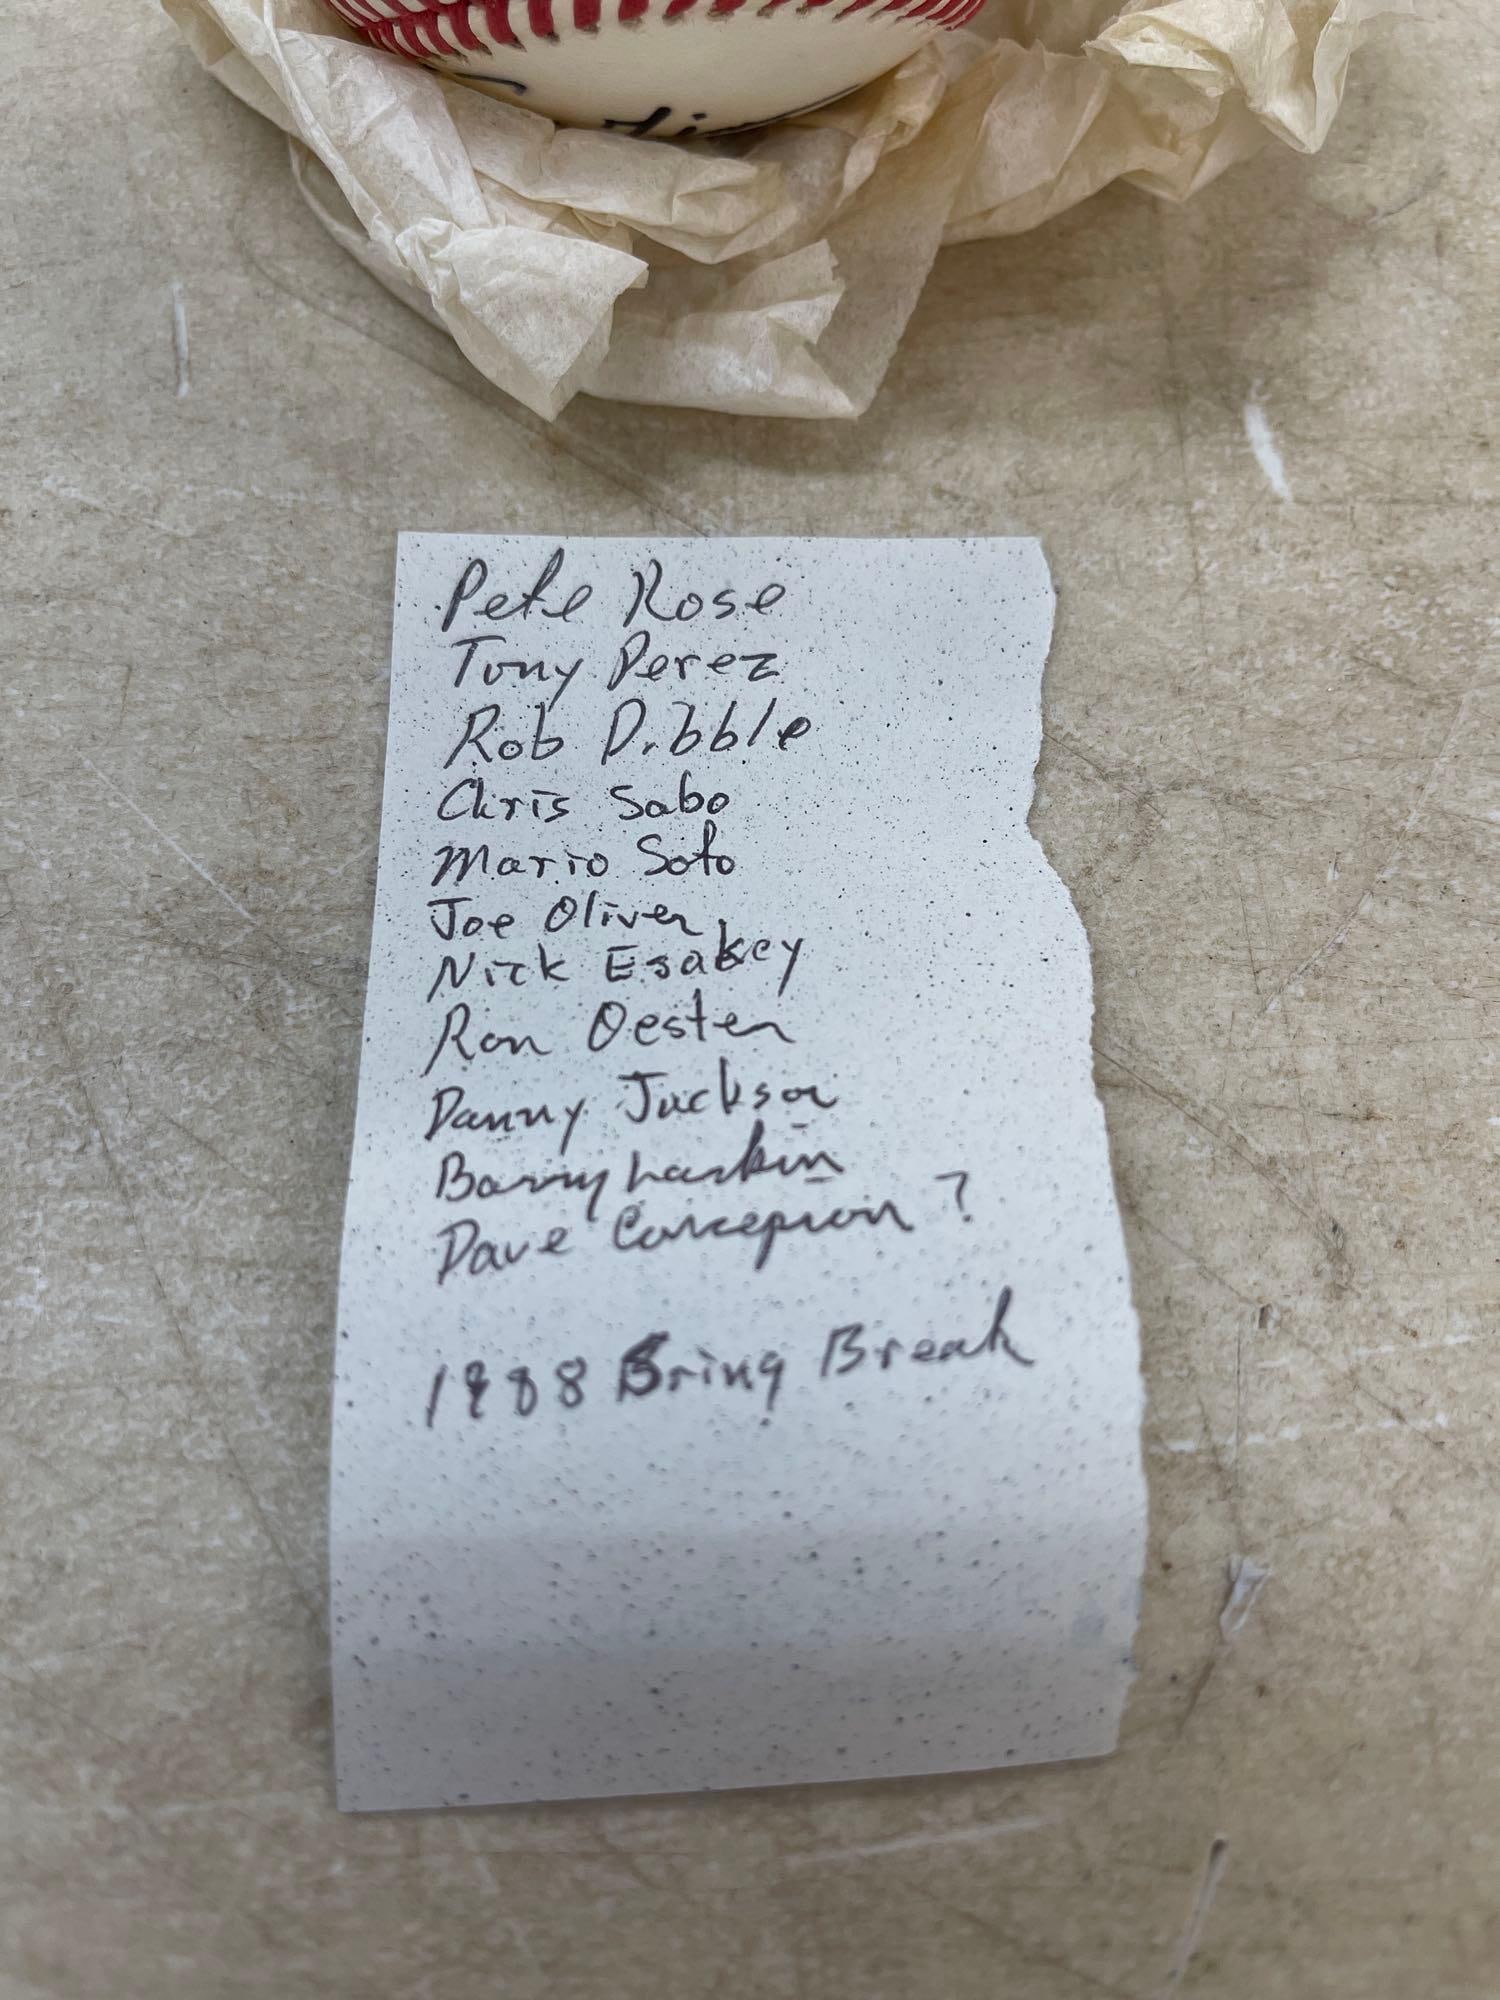 Pete Rose
Tony Perez
Rob Dibble
Chris Sabo
Mario Soto
Joe Oliver
Nick Esasky
Ron Oester
Danny Jackson
Barry Larkin
Dave Concepcion ?
1988 Spring Break